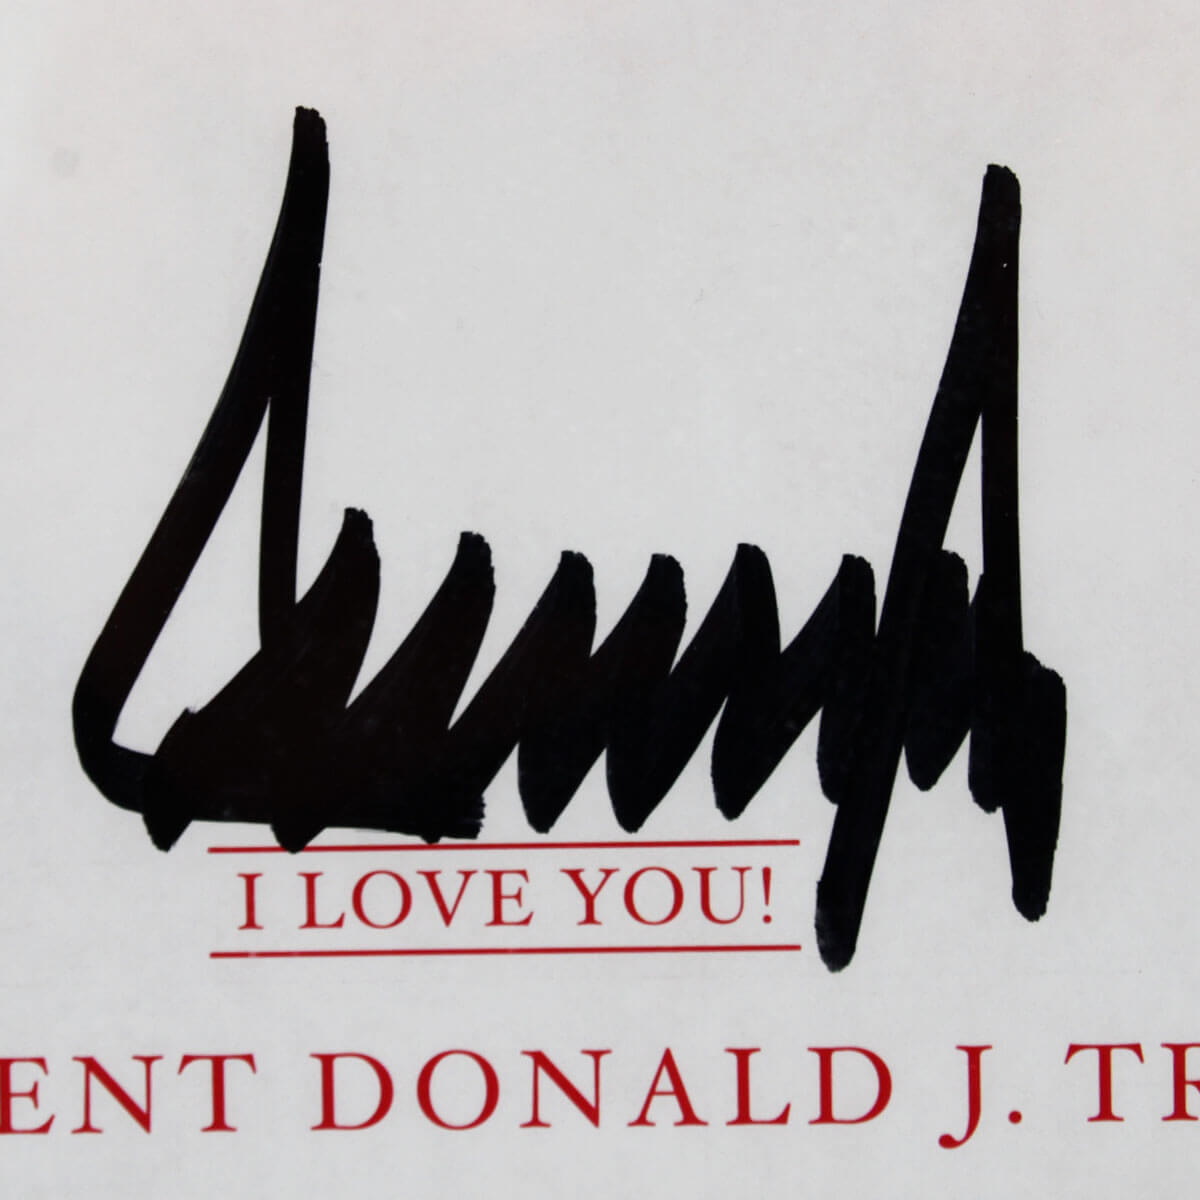 I LOVE YOU!
ENT DONALD J. TR